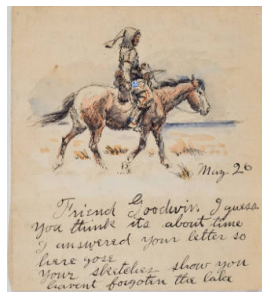 May 26
Friend Goodwin. I guess
you think its about time
I answered your letter so
here gose
Your sketches show you
havent forgoten the lake